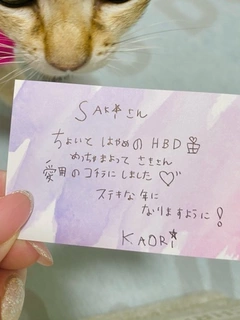 SAKiさん
ちょいと はやめの HBD
めっちゃまよって さきさん
愛用の コチラにしました♡
ステキな年に
なりますように!
KAORi